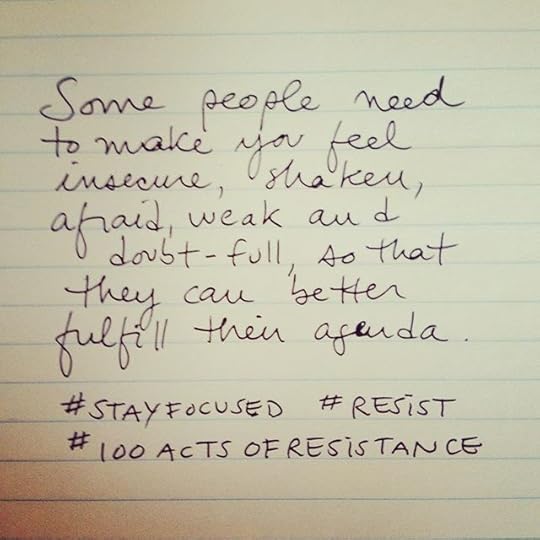 Some people need
to make you feel
insecure, shaken,
afraid, weak and
doubt-full, so that
they can better
fulfill their agenda.
#STAYFOCUSED #RESIST
#100 ACTS OF RESISTANCE